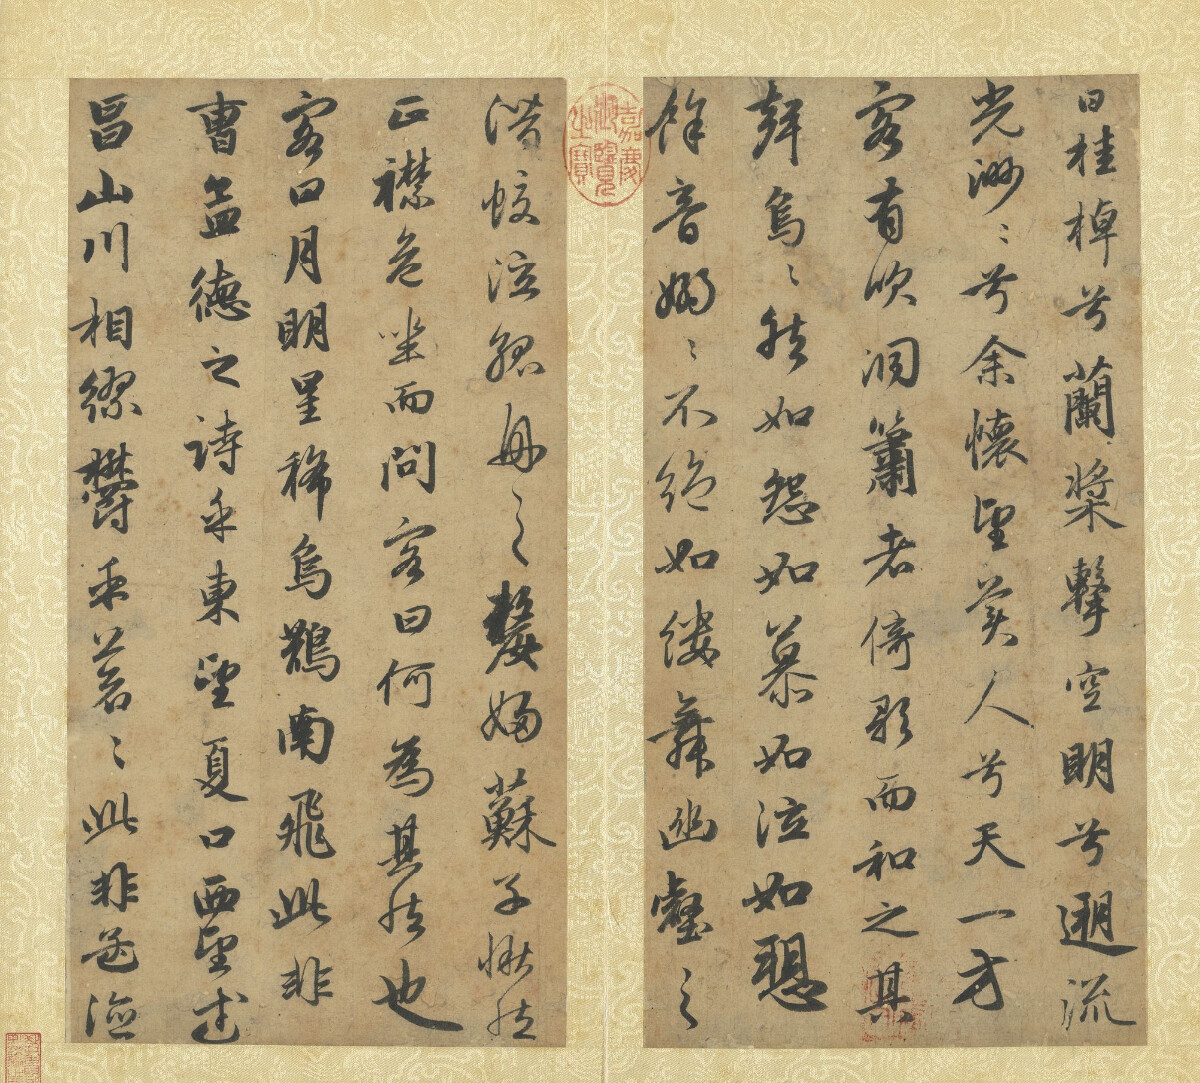 曰桂棹兮蘭槳擊空明兮遡流
光渺〻兮余懷望美人兮天一方
客有吹洞簫者倚歌而和之其
聲烏〻然如怨如慕如泣如愬
餘音嫋〻不絕如縷舞幽壑之
潛蛟泣孤舟之嫠婦蘇子愀然
正襟危坐而問客曰何為其然也
客曰月明星稀烏鵲南飛此非
曹孟德之詩乎東望夏口西望武
昌山川相繆鬱乎蒼〻此非孟德
嘉慶御覽之寶